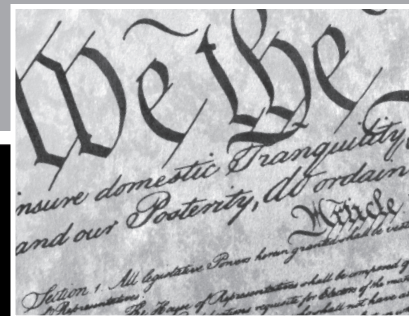 We the
insure domestic Tranquility,
and our Posterity, do ordain
Article
Section 1. All legislative Powers herein granted shall be
Representatives.
The House of Representatives shall be composed of
Representatives
shall not have